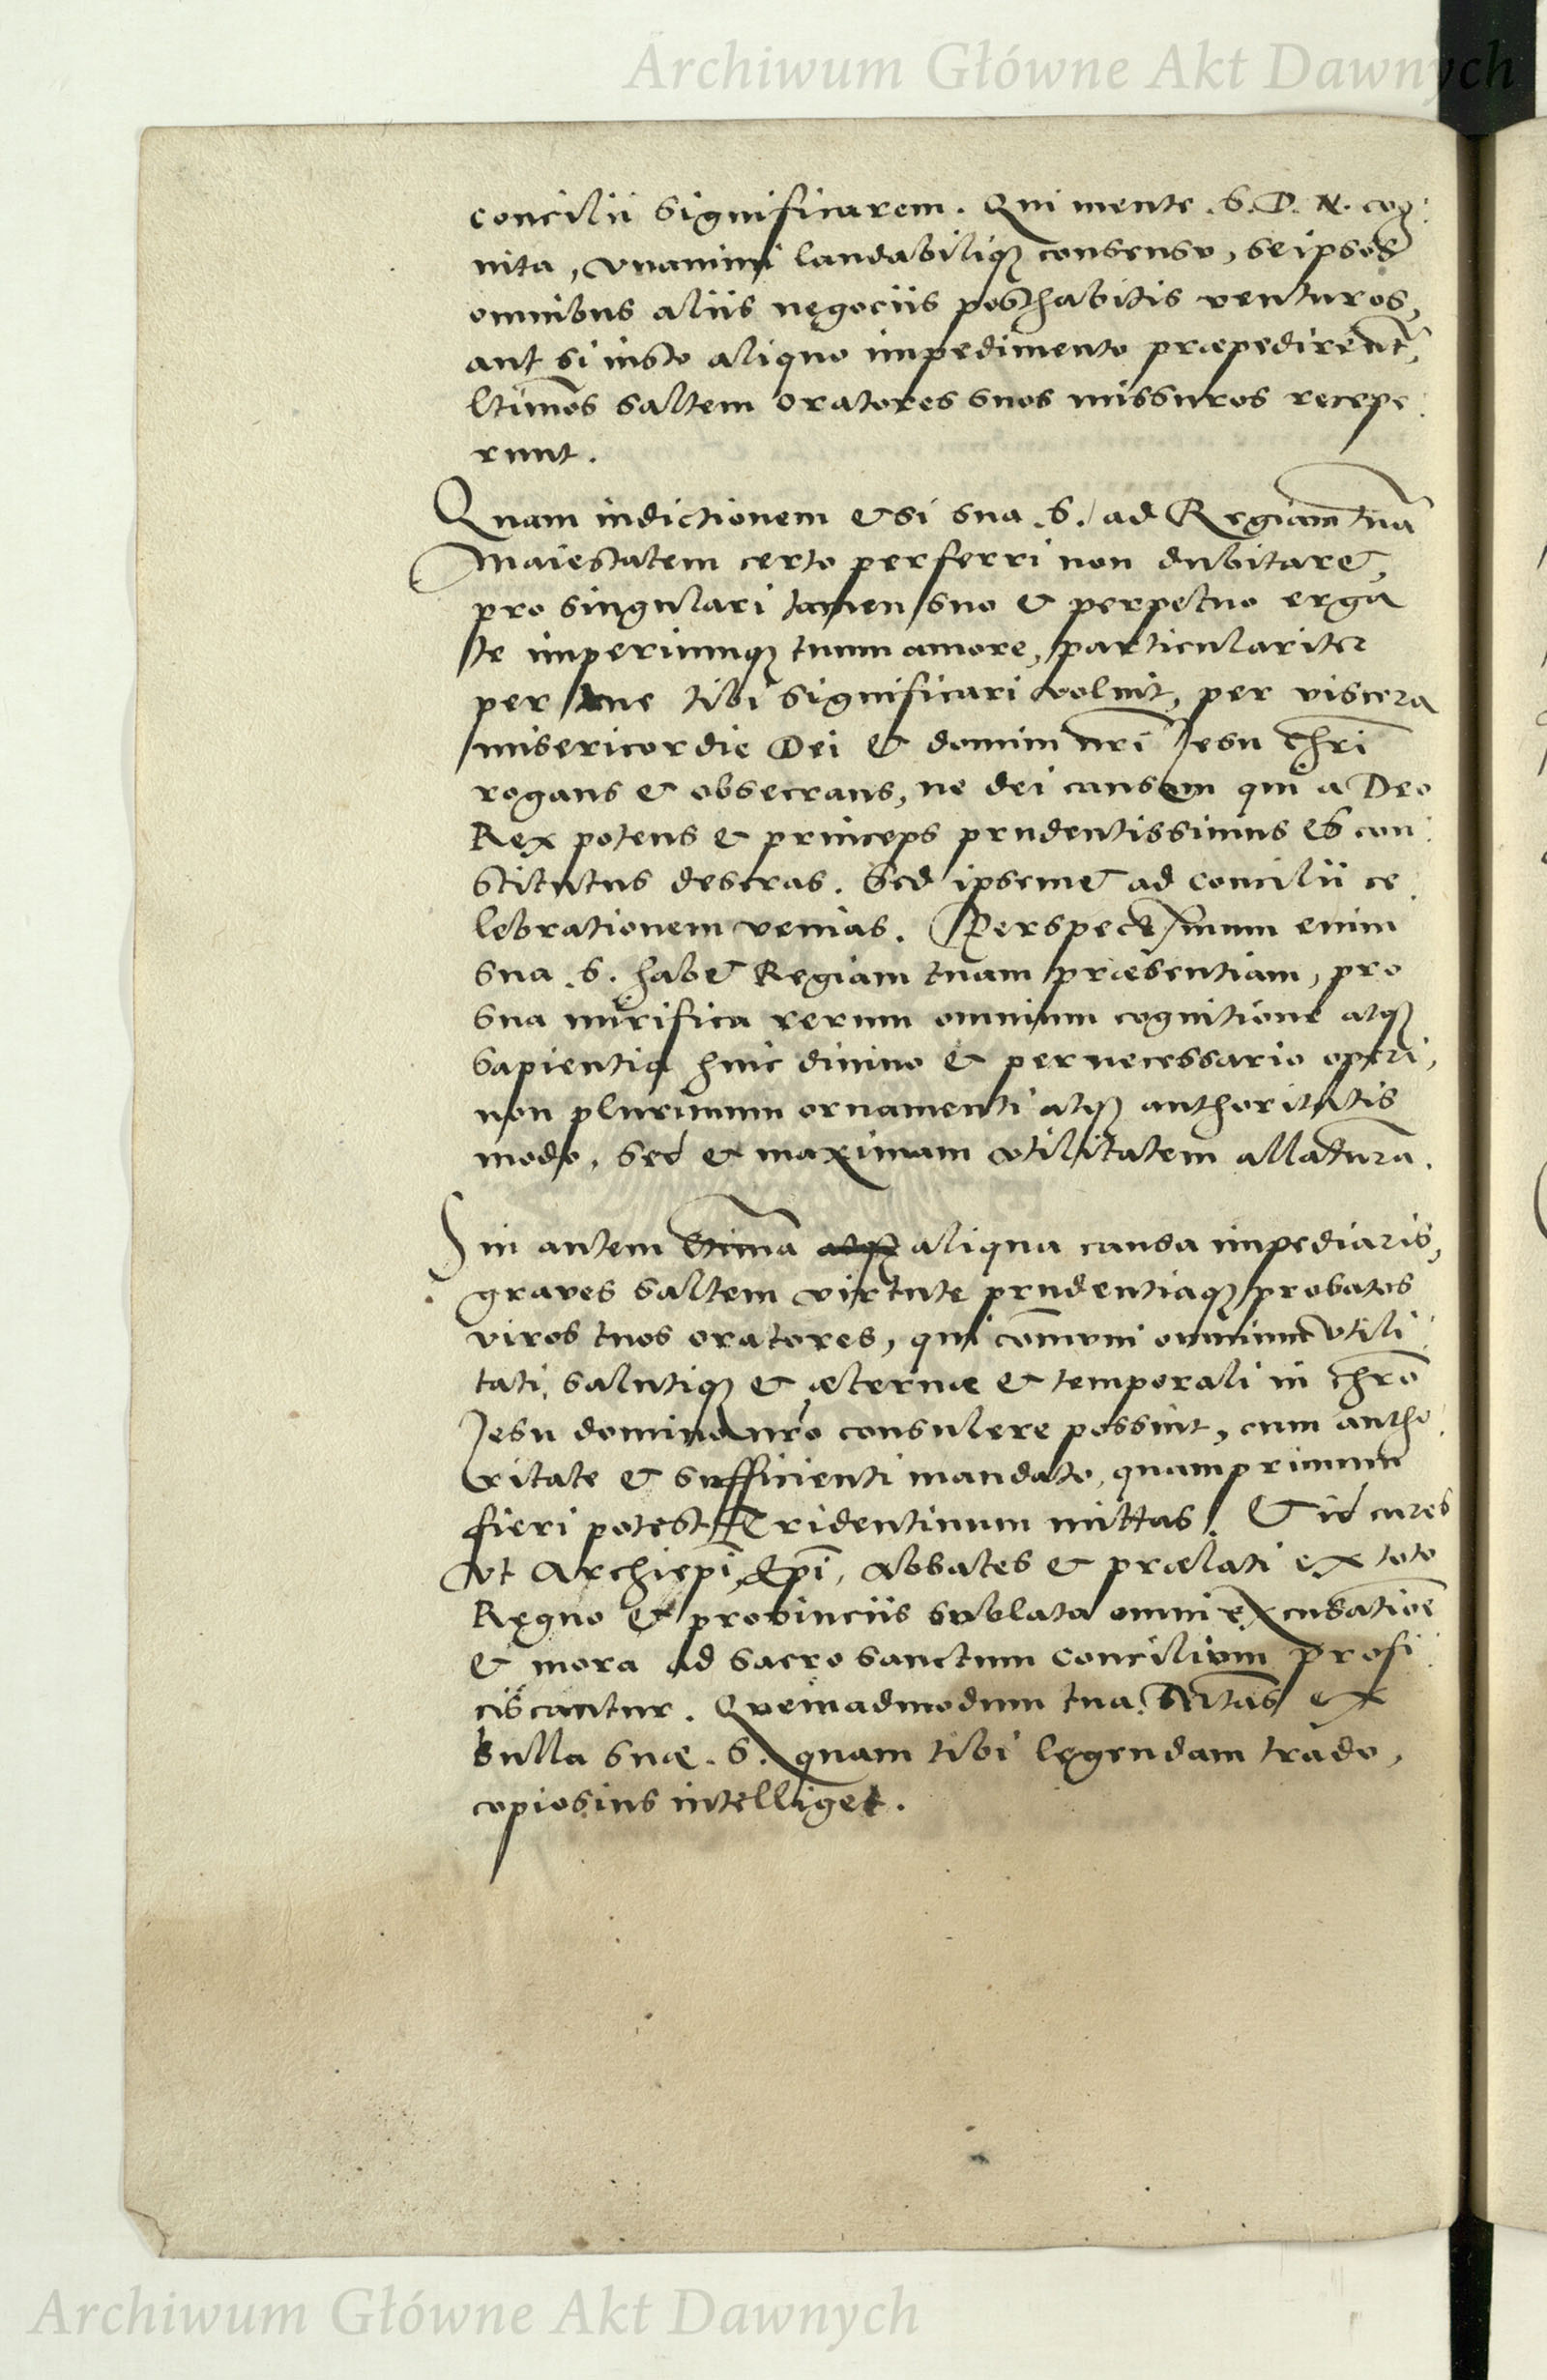 Archiwum Główne Akt Dawnych
concilii significarem. Qui mente .S.D.N. cog:
nita, vnanimi laudabiliq3 consensu, seipsos
omnibus aliis negociis posthabitis venturos,
aut si iusto aliquo impedimento præpedirent~,
ltimõs saltem oratores suos missuros recepe:
runt.
Quam indictionem etsi sua .S. ad Regiam tuã
Maiestatem certo perferri non dubitaret,
pro singulari tamen suo et perpetuo erga
te imperiumq3 tuum amore, particulariter
per me tibi significari voluit, per viscera
misericordie Dei et domini nrĩ Jesu chrĩ
rogans et obsecrans, ne dei causam qui a Deo
Rex potens et princeps prudentissimus es con:
stitutus deseras. Sed ipsemet ad concilii ce:
lebrationem venias. Perspectissimum enim
sua .S. habet Regiam tuam præsentiam, pro
sua mirifica rerum omnium cognitione atq3
sapientia huic diuino et pernecessario operi,
non plurimum ornamenti atq3 authoritatis
modo, sed et maximam vtilitatem allaturã.
Sin autem ltimã aliqua causa impediaris,
graues saltem virtute prudentiaq3 probatos
viros tuos oratores, qui cõmuni omnium vtili:
tati, salutiq3 et æternæ et temporali in chrõ
Jesu domino nrõ consulere possint, cum autho:
ritate et sufficienti mandato, quamprimum
fieri potest Tridentinum mittas. Et id cures
vt Archiepĩ, Epĩ, Abbates et prælati ex toto
Regno et prouinciis sublata omni excusatiõe
et mora ad sacrosanctum concilium profi:
ciscantur. Quemadmodum tua Sertãs ex
bulla suæ .S. quam tibi legendam trado,
copiosius intelliget.
Archiwum Główne Akt Dawnych